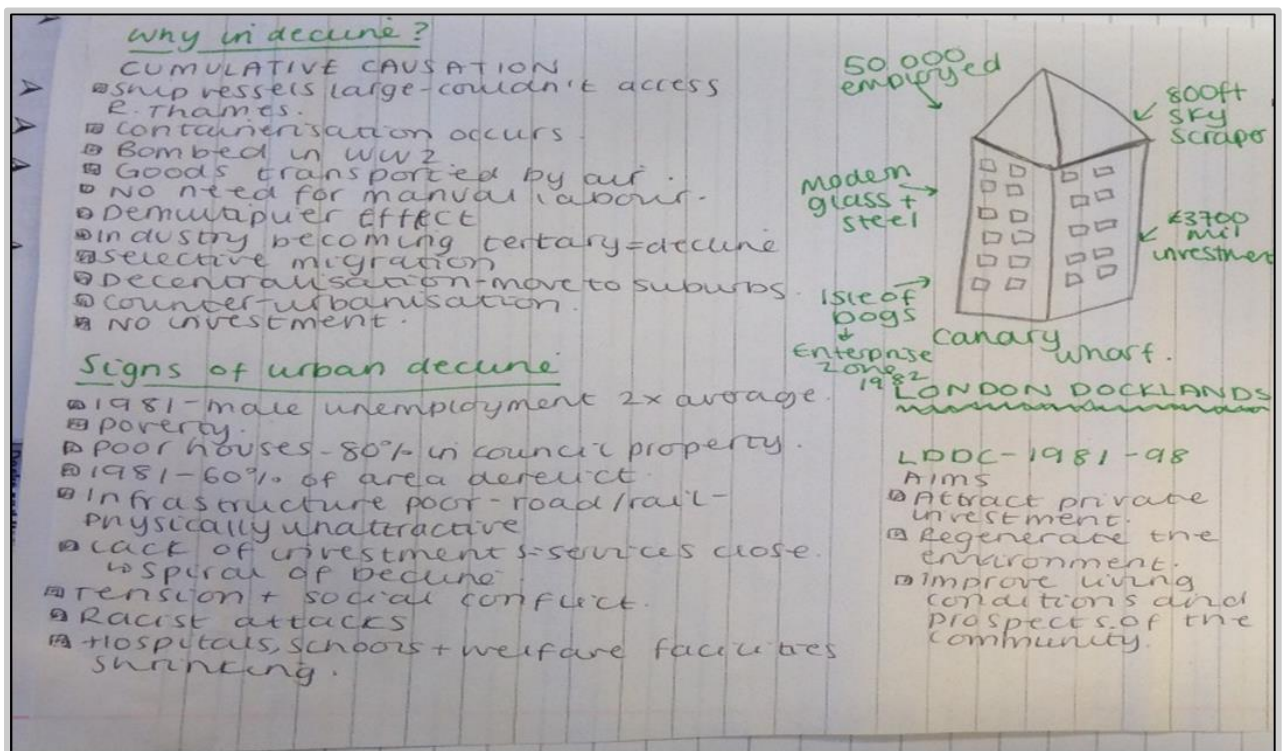 Why in decline?
CUMULATIVE CAUSATION
Ship vessels large - couldn't access
R. Thames.
Containerisation occurs
Bombed in WW2
Goods transported by air.
No need for manual labour.
Demultiplier Effect
Industry becoming tertary = decline
Selective migration
Decentralisation - move to suburbs.
Counter-urbanisation.
No investment.
Signs of urban decline
1981 - male unemployment 2x avarage.
Poverty.
Poor houses - 80% in council property.
1981 - 60% of area derelict.
Infrastructure poor - road/rail -
physically unattractive
Lack of investment s=services close.
↳ Spiral of Decline
Tension + social conflict.
Racist attacks
Hospitals, schools + welfare facilities
shrinking.
50,000
employed
800ft
sky
scraper
Modern
glass +
steel
£3700
mil
investment
Isle of
Dogs
Enterprise
zone
1982
Canary
Wharf.
LONDON DOCKLANDS
LDDC - 1981 - 98
Aims
Attract private
investment.
Regenerate the
environment.
Improve living
conditions and
prospects of the
community.